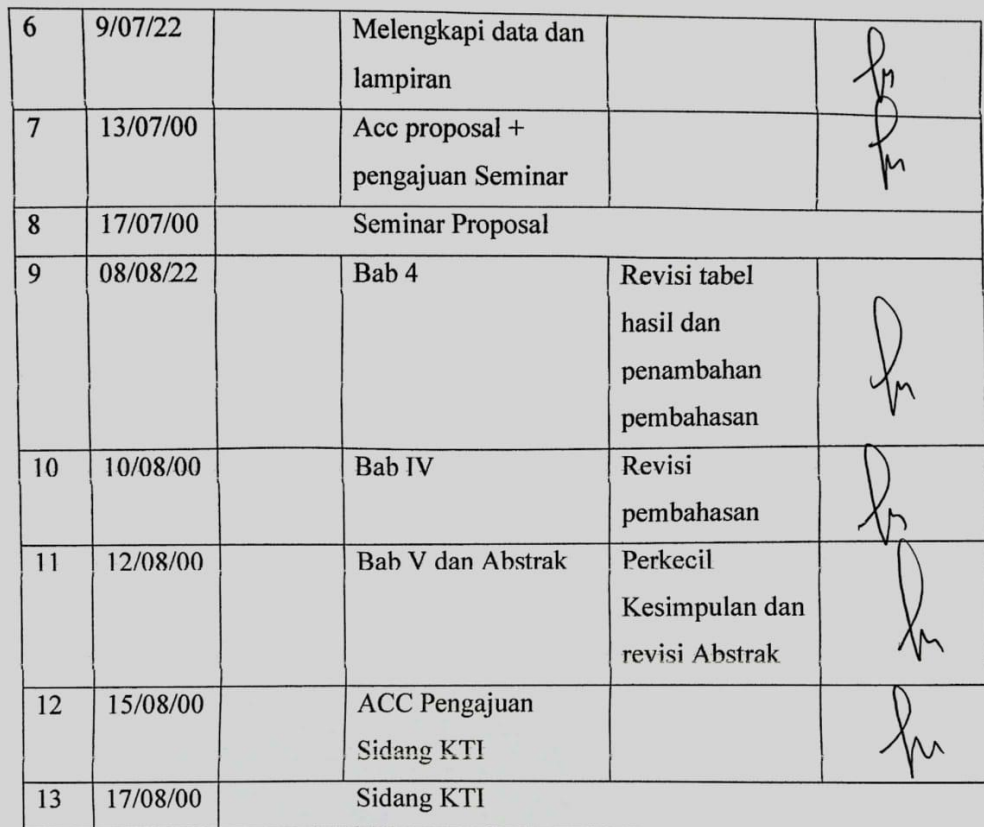 6 9/07/22 Melengkapi data dan
lampiran
7 13/07/00 Acc proposal +
pengajuan Seminar
8 17/07/00 Seminar Proposal
9 08/08/22 Bab 4 Revisi tabel
hasil dan
penambahan
pembahasan
10 10/08/00 Bab IV Revisi
pembahasan
11 12/08/00 Bab V dan Abstrak Perkecil
Kesimpulan dan
revisi Abstrak
12 15/08/00 ACC Pengajuan
Sidang KTI
13 17/08/00 Sidang KTI